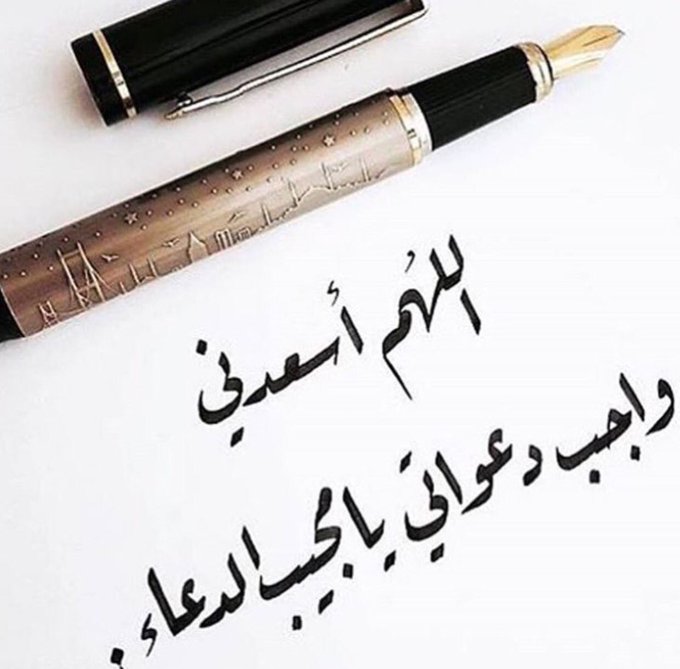 اللهُم أسعدني
واجب دعواتي يا مجيب الدعاء .